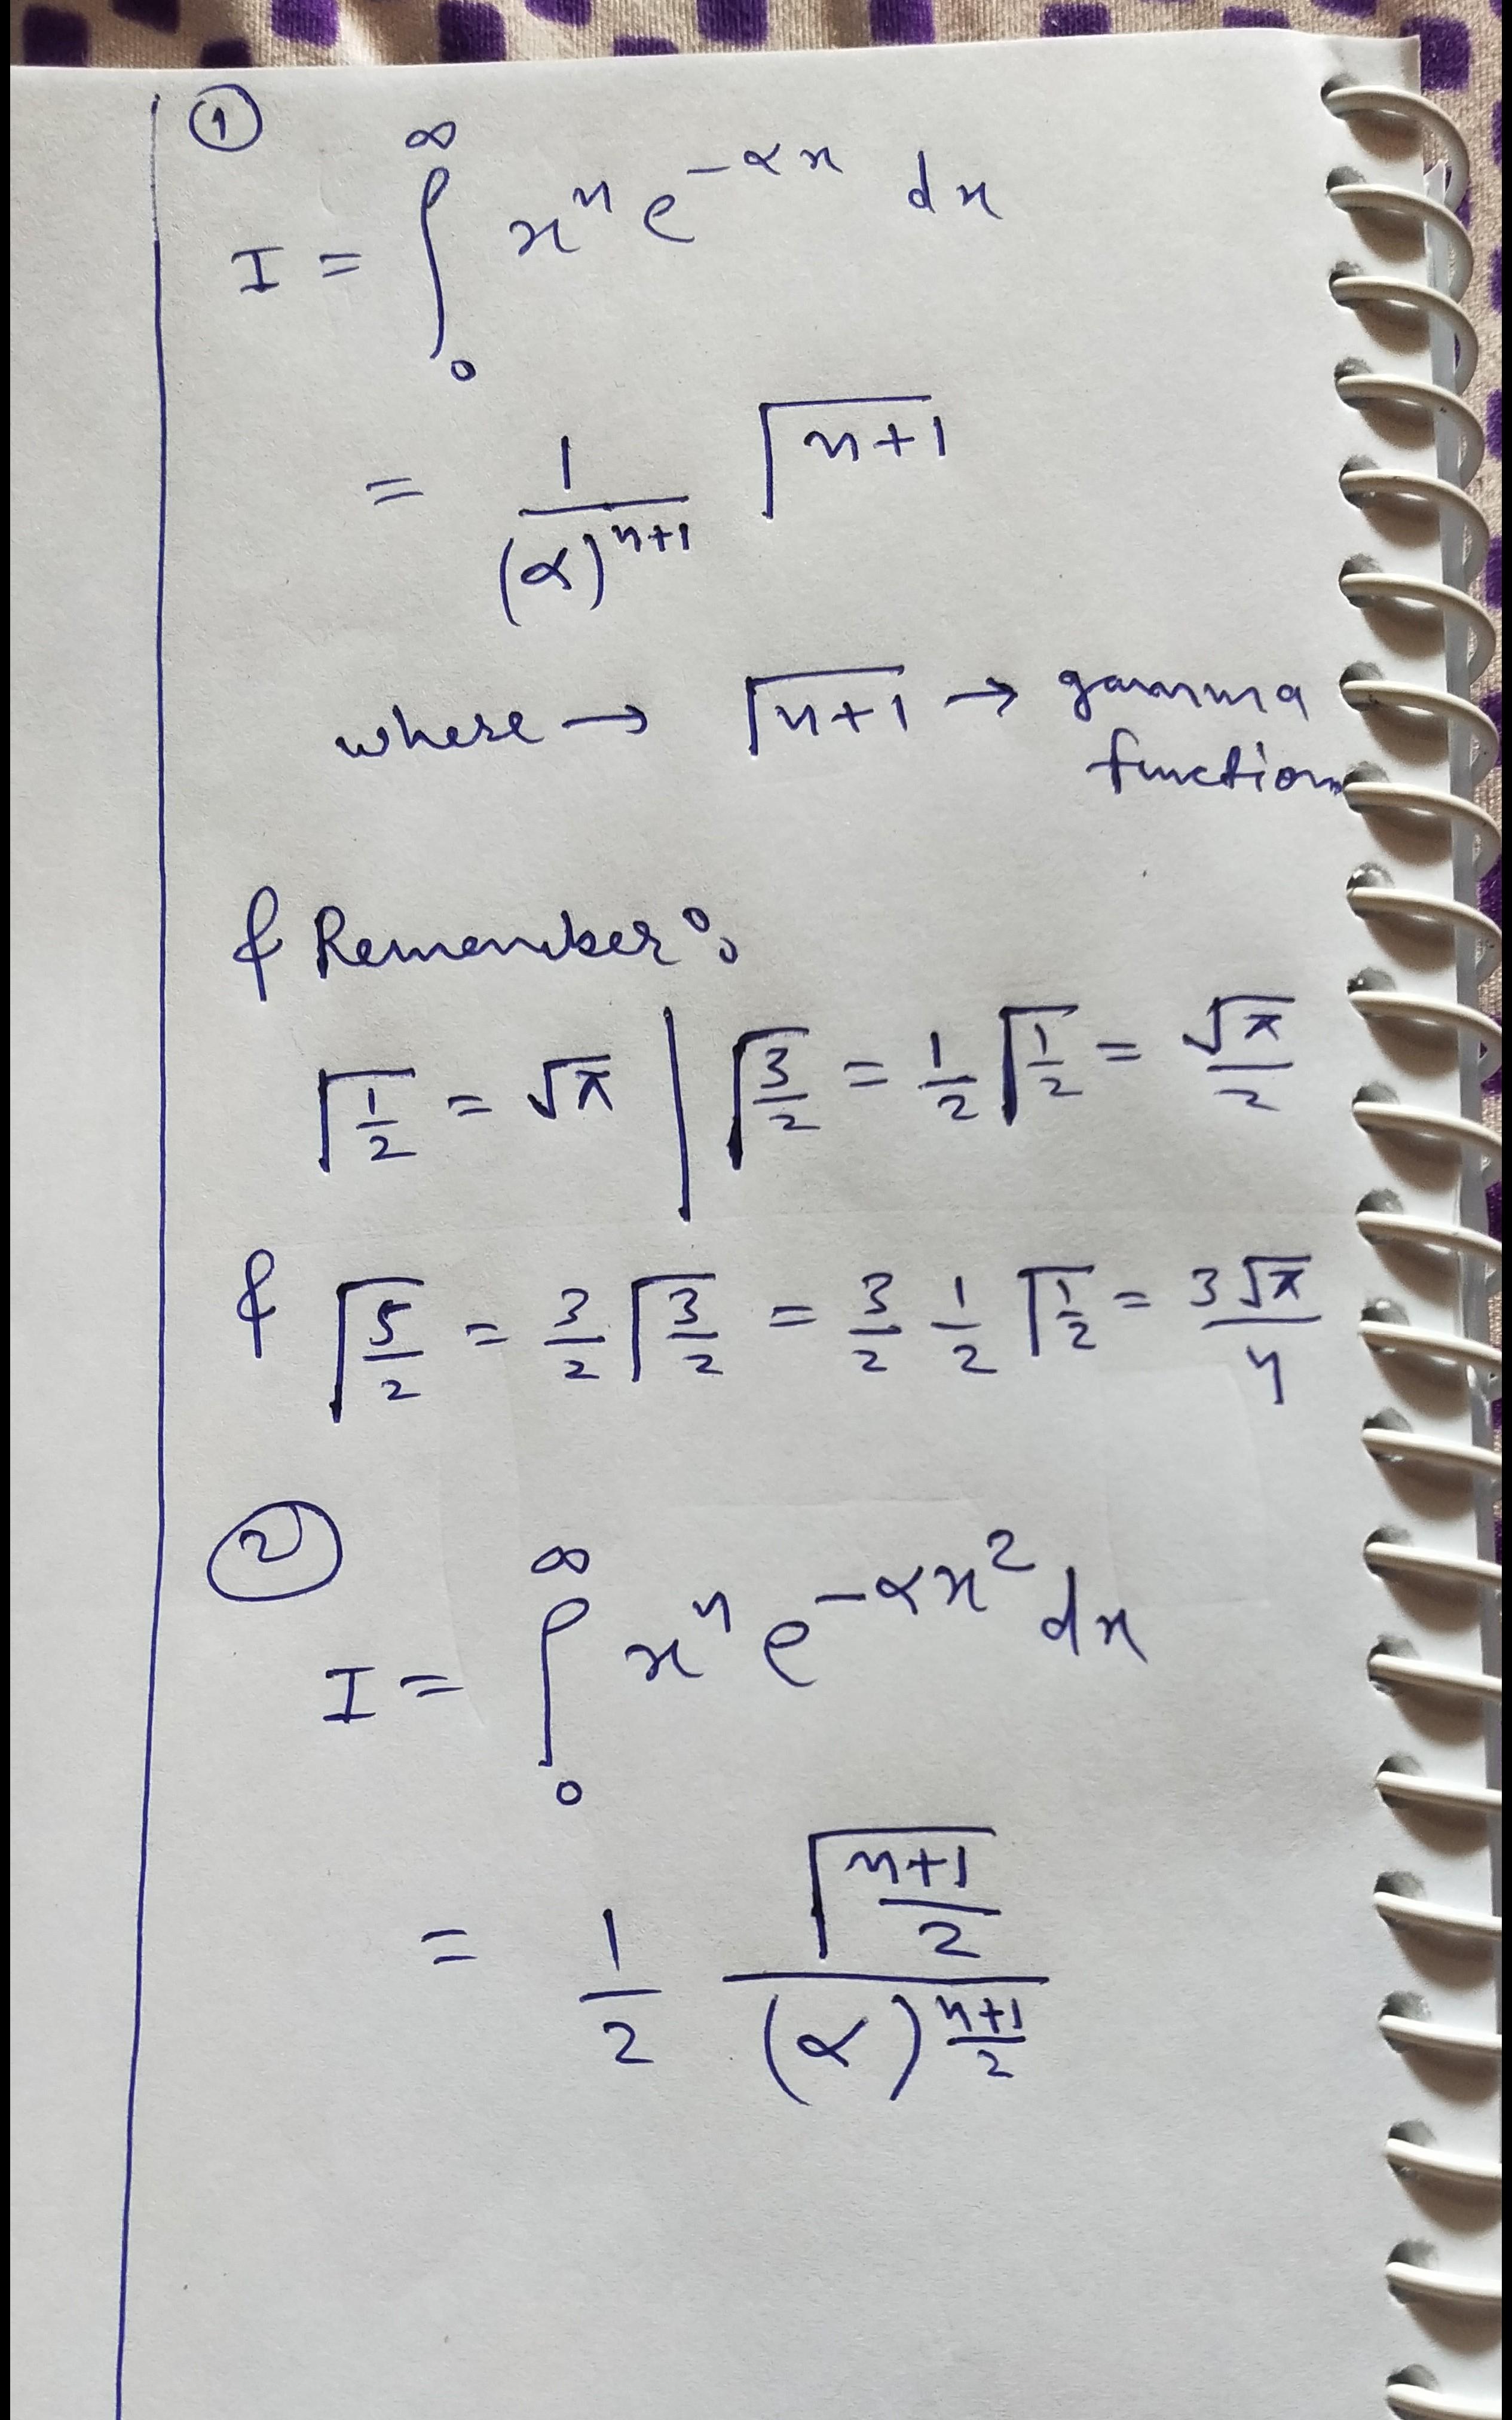 ①
I = ∫₀^∞ xⁿ e^{-αx} dx
= 1/(α)^{n+1} Γ(n+1)
where → Γ(n+1) → gamma
function
& Remember :
Γ(1/2) = √π | Γ(3/2) = 1/2 Γ(1/2) = √π/2
& Γ(5/2) = 3/2 Γ(3/2) = 3/2 1/2 Γ(1/2) = 3√π/4
②
I = ∫₀^∞ xⁿ e^{-αx²} dx
= 1/2 Γ((n+1)/2)/(α)^{(n+1)/2}